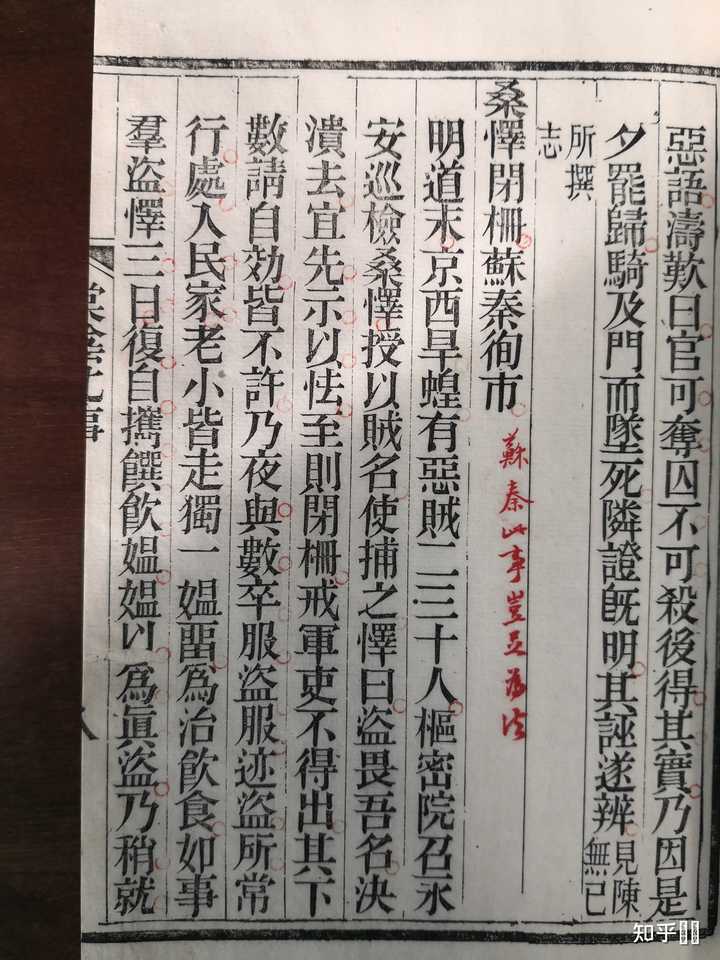 惡語濤歎曰官可奪囚不可殺後得其實乃因是
夕罷歸騎及門而墜死隣證旣明其誣遂辨見陳無已
所撰
志
桑懌閉柵蘇秦徇市
蘇秦此事豈足為法
明道末京西旱蝗有惡賊二三十人樞密院召永
安巡檢桑懌授以賊名使捕之懌曰盜畏吾名決
潰去宜先示以怯至則閉柵戒軍吏不得出其下
數請自効皆不許乃夜與數卒服盜服迹盜所常
行處入民家老小皆走獨一媼畱爲治飲食如事
羣盜懌三日復自攜饌飲媼媼以爲眞盜乃稍就
棠陰比事
八
知乎